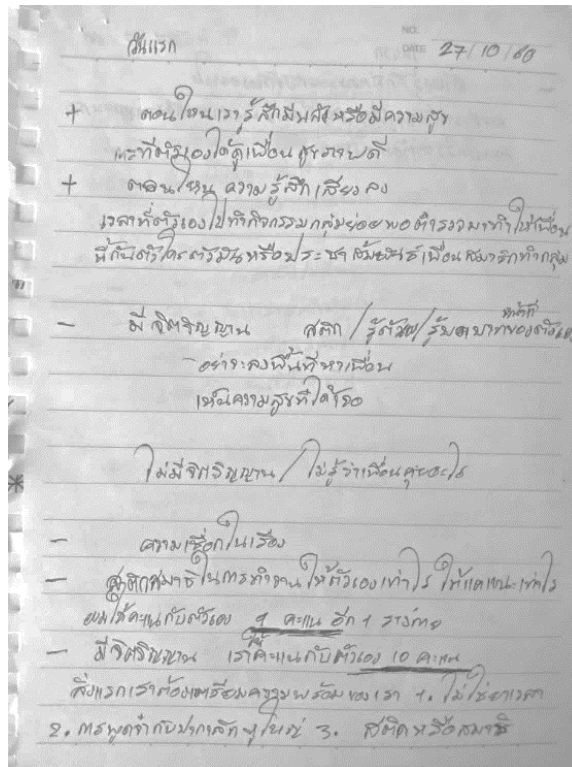 NO.
วันแรก DATE 27/10/60
+ ตอนไหนเรารู้สึกมีพลังหรือมีความสุข
ที่ตัวเองได้ดูเพื่อนสุขภาพดี
+ ตอนไหน ความรู้สึกเสียวลง
เวลาที่ตัวเองไปทำกิจกรรมกลุ่มย่อยพอตำรวจมาทำให้เพื่อน
หรือประชาสัมพันธ์เพื่อนสมาชิกทำกลุ่ม
- มีจิตวิญญาน สติก / รู้ตัว / รู้บทบาทหน้าที่ของตัวเอง
- อย่าจะลงพื้นที่หาเพื่อน
เห็นความสุขที่ได้เจอ
* ไม่มีจิตวิญญาน / ไม่รู้ว่าเพื่อนคุยอะไร
- ความเชื่อกในเรื่อง
- สติกสมาธิในการทำงาน ให้ตัวเองเท่าไร ให้แคแนะเท่าไร
ผมให้คะแนกับตัวเอง 9 คะแน อีก 1 ร่างกาย
- มีจิตวิญญาน เราให้คะแนกับตัวเอง 10 คะแน
สิ่งแรกเราต้องเตรียมความพร้อมของเรา 1. ไม่ใช้ยาเวลา
2. การพูดจำกับปากสัก ผู้ใหญ่ 3. สติดหรือสมาธิ